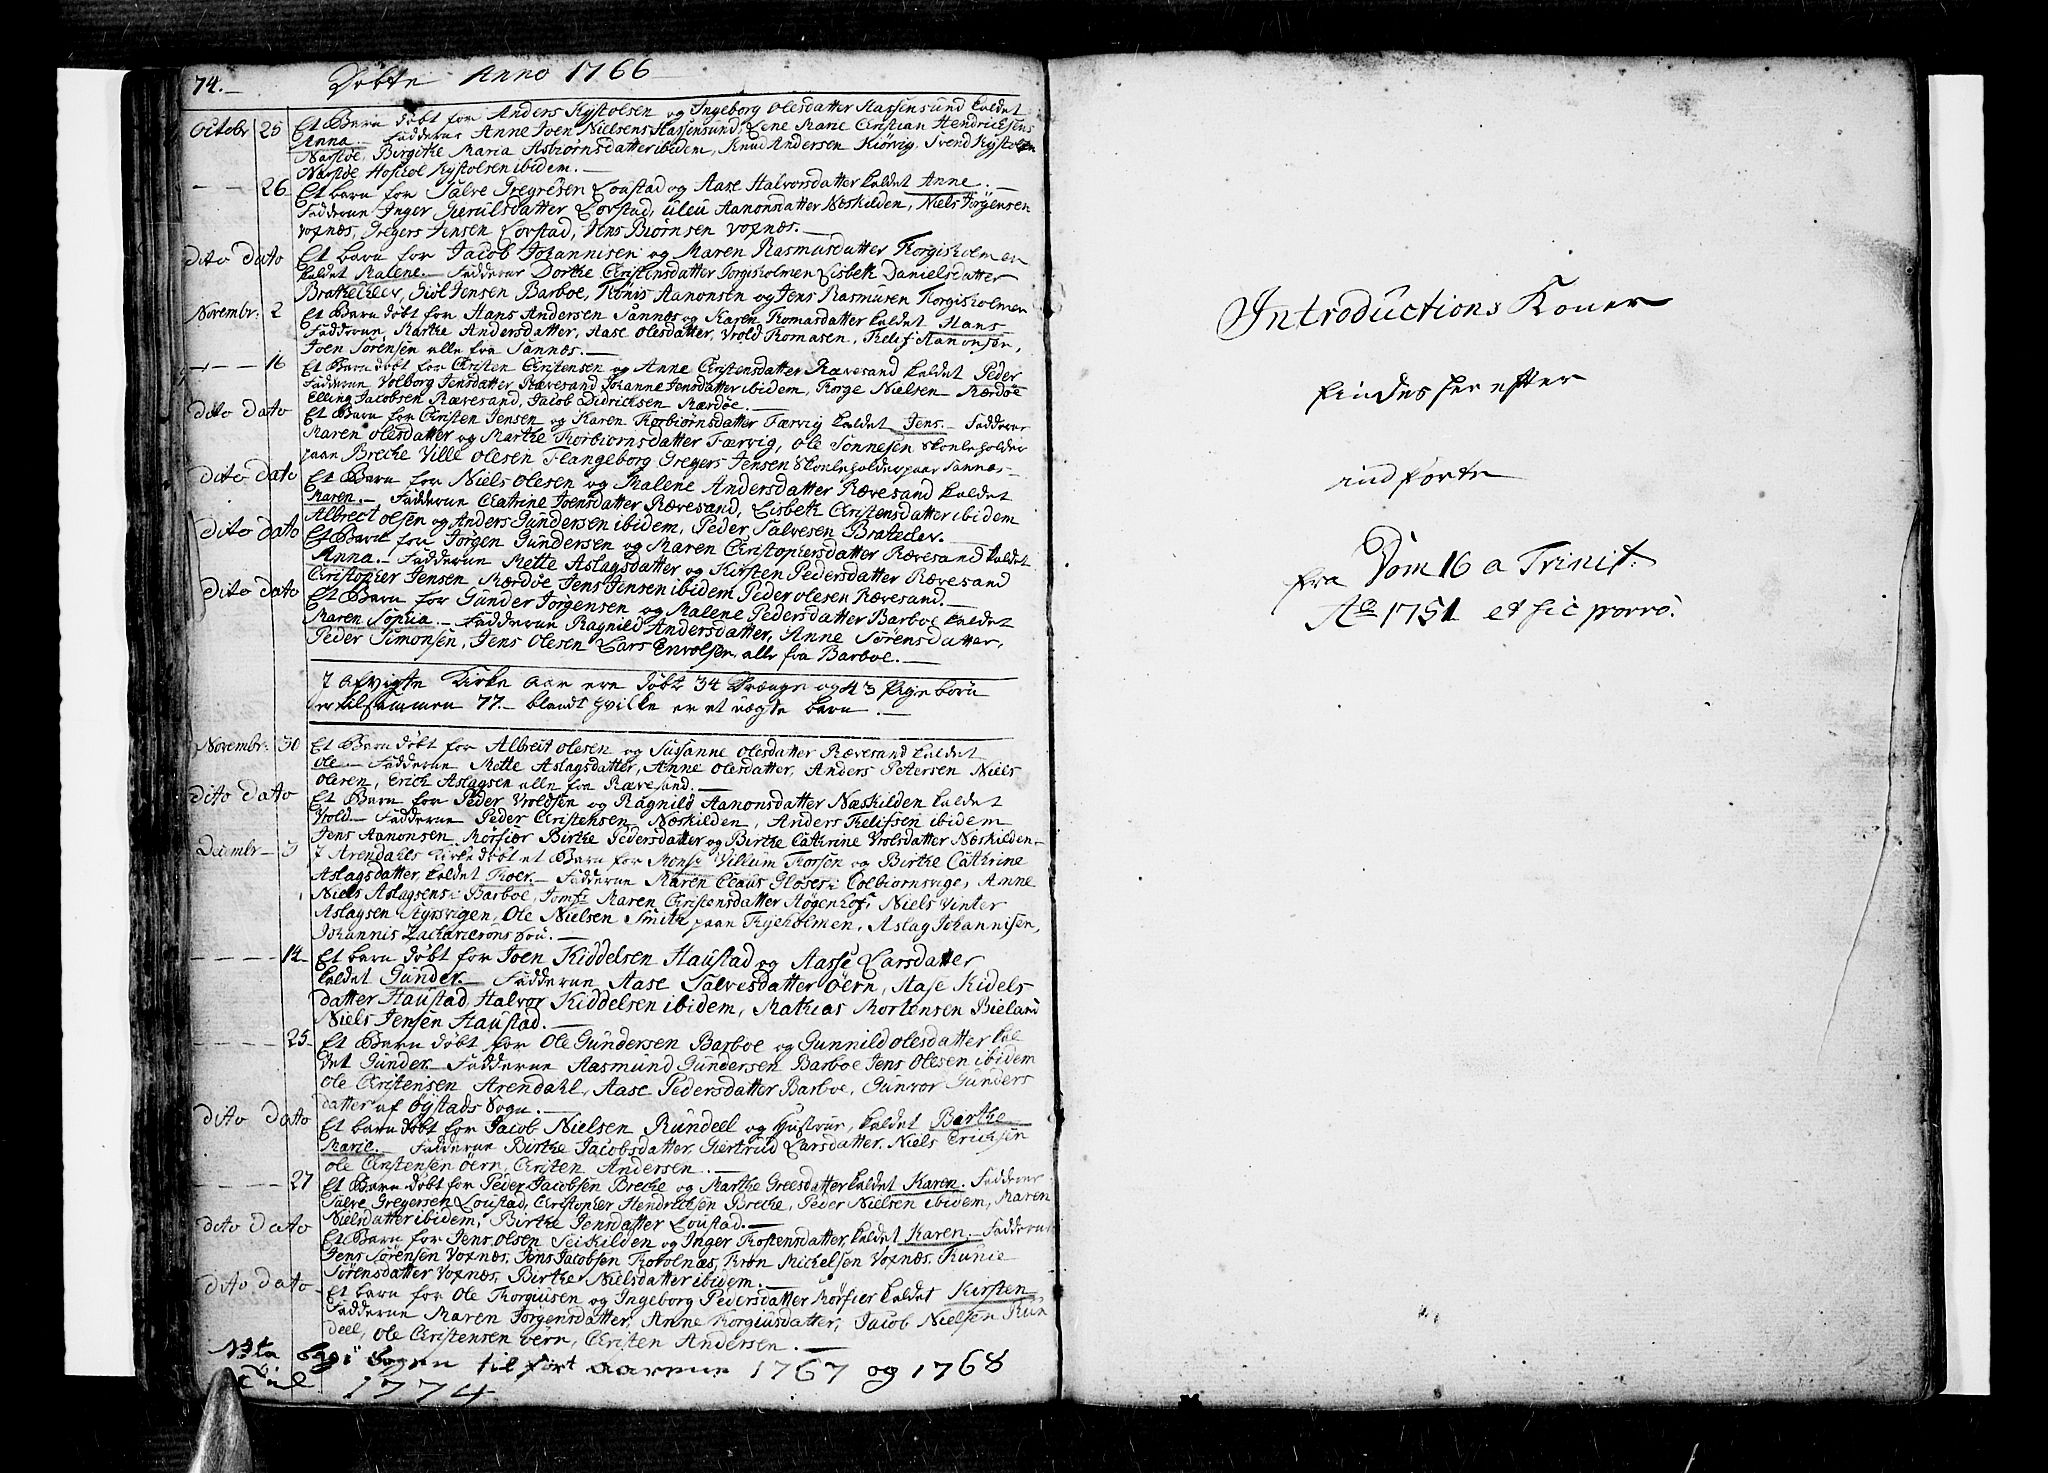 74.
Döbte Anno 1766
Octobr 25 Et Barn döbt for Anders Kystolsen og Ingeborg Olesdatter Hassensund kaldet
Anna. Fadderne Anne Joen Nielsens Hassensund, Lene Marie Christian Hendricksens
Narstöe, Birgitke Maria Asbiörnsdatter ibidem, Knud Andersen Kiörvig, Svend Kystolsen
Narstöe Kystolsen ibidem.
26. Et barn for Salve Gregersen Loustad og Aase Halvorsdatter kaldet Anne.
Fadderne Inger Lovstad, Aanonsdatter Næskilden, Niels Jörgensen
Voxnæs, Gregers Jensen Lovstad, Jens Biörnsen Voxnæs.
Dito Dato Et barn for Jacob Johannisen og Maren Rasmusdatter Torgisholmen
kaldet Malene. Fadderne Dorthe Christensdatter Torgisholmen Lisbeth Danielsdatter
Jensen Barboe, Tönis Aanonsen og Jens Rasmusen Torgisholmen
Novembr: 2 Et Barn döbt for Hans Andersen Sannæs og Karen Tomasdatter kaldet Hans
Fadderne Marthe Andersdatter, Aase Olesdatter, Vrold Tomasen, Aanonsen,
Joen Sörensen alle fra Sannæs.
16 Et Barn döbt for Christen Christensen og Anne Christensdatter Rævesand kaldet Peder
Fadderne Volborg Jensdatter Rævesand Johanne Jensdatter ibidem, Torge Nielsen Mærdöe
Elling Jacobsen Rævesand, Jacob Didricksen Mærdöe.
Dito Dato Et Barn for Christen Jensen og Karen Torbiörnsdatter Færvig kaldet Jens. Fadderne
Maren Olesdatter og Marthe Torbiörnsdatter Færvig, Ole Tönnesen Skoleholder
paa Breche Ville Olesen Flangeborg Gregers Jensen Skoleholder paa Sannæs
Dito Dato Et Barn for Niels Olesen og Malene Andersdatter Rævesand kaldet
Maren. Fadderne Catrine Joensdatter Rævesand, Lisbeth Christensdatter ibidem
Albrect Olsen og Anders Gundersen ibidem, Peder Salvesen
Dito Dato Et Barn for Jörgen Gundersen og Maren Christophersdatter Rævesand kaldet
Anna. Fadderne Mette Aslagsdatter og Kirsten Pedersdatter Rævesand
Christopher Jensen Mærdöe Jens Jensen ibidem Peder Olesen Rævesand.
Dito Dato Et Barn for Gunder Jorgensen og Malene Pedersdatter Barboe kaldet
Maren Sophia. Fadderne Ragnild Andersdatter, Anne Sörensdatter,
Peder Simonsen, Jens Olesen Lars Envolsen alle fra Barboe.
I afvigte Kirke Aar ere Döbt 34 Drænge og 43 Pige börn
er tilsammen 77. blandt hvilke er et uægte barn.
Novembr: 30 Et Barn döbt for Albreit Olesen og Sussanne Olesdatter Rævesand kaldet
Ole. Fadderne Mette Aslagsdatter, Anne Olesdatter, Anders Petersen Niels
Olesen, Erick Aslagsen alle fra Rævesand.
Dito Dato Et Barn for Peder Vroldsen og Ragnild Aanonsdatter Næskilden kaldet
Vrold. Fadderne Peder Christensen Næskilden, Anders Telifsen ibidem
Jens Aanonsen Mörfiær Birthe Pedersdatter og Birthe Cathrine Vrolsdatter Næskilden.
Decembr 3 I Arendahls Kirke döbt et Barn for Mons: Villum Torsen og Birthe Cathrine
Aslagsdatter kaldet Fadderne Maren Claus Gloses i Colbiornsvige, Anne
Niels Aslagsens i Barboe, Jomf: Maren Christensdatter Högenhof, Niels Vinter
Aslagsen Styrsvigen, Ole Nielsen Smith paa Tyeholmen, Aslag Johannisen,
Johannis
14 Et barn döbt for Joen Kiddelsen Haustad og Aasse Larsdatter
kaldet Gunder. Fadderne Aase Salvesdatter Öern, Aase Kidels
datter Haustad Halvor Kiddelsen ibidem, Mathias Mortensen Bieland
Niels Jensen Haustad.
25 Et Barn döbt for Ole Gundersen Barboe og Gunnild Olesdatter kal
det Gunder. Fadderne Aasmund Gundersen Barboe Jens Olesen ibidem
Ole Christensen Arendahl, Aase Pedersdatter Barboe, Gunvor Gunders
datter af Öystads Sogn.
Dito Dato Et barn döbt for Jacob Nielsen Rundeel og Hustrue, kaldet Barthe
Marie. Fadderne Birthe Jacobsdatter, Giertrud Larsdatter, Niels Ericksen
Ole Christensen Öern, Christen Andersen.
27 Et Barn döbt for Peder Jacobsen Breche og Marthe Greesdatter kaldet Karen. Fadderne
Salve Gregersen Loustad, Christopher Hendricksen Breche, Peder Nielsen ibidem, Maren
Nielsdatter ibidem, Birthe Jensdatter Loustad.
Dito Dato Et Barn for Jens Olsen Seiskilden og Inger Tostensdatter kaldet Karen. Fadderne
Jens Sörensen Voxnæs, Jens Jacobsen Mickelsen Voxnæs, Tunie
Sörensdatter Voxnæs, Birthe Nielsdatter ibidem.
Dito Dato Et barn for Ole Torgiusen og Ingeborg Pedersdatter Mörfier kaldet Kirsten
Fadderne Maren Jörgensdatter, Anne Torgiusdatter, Jacob Nielsen Run
deel, Ole Christensen Öern, Christen Andersen.
Nota i Bogen til fört Aarene 1767 og 1768
til 1774
Introductions Koner
findes her efter
indförte
fra Dom 16 a Trinit:
Ao 1751 et sic porro.